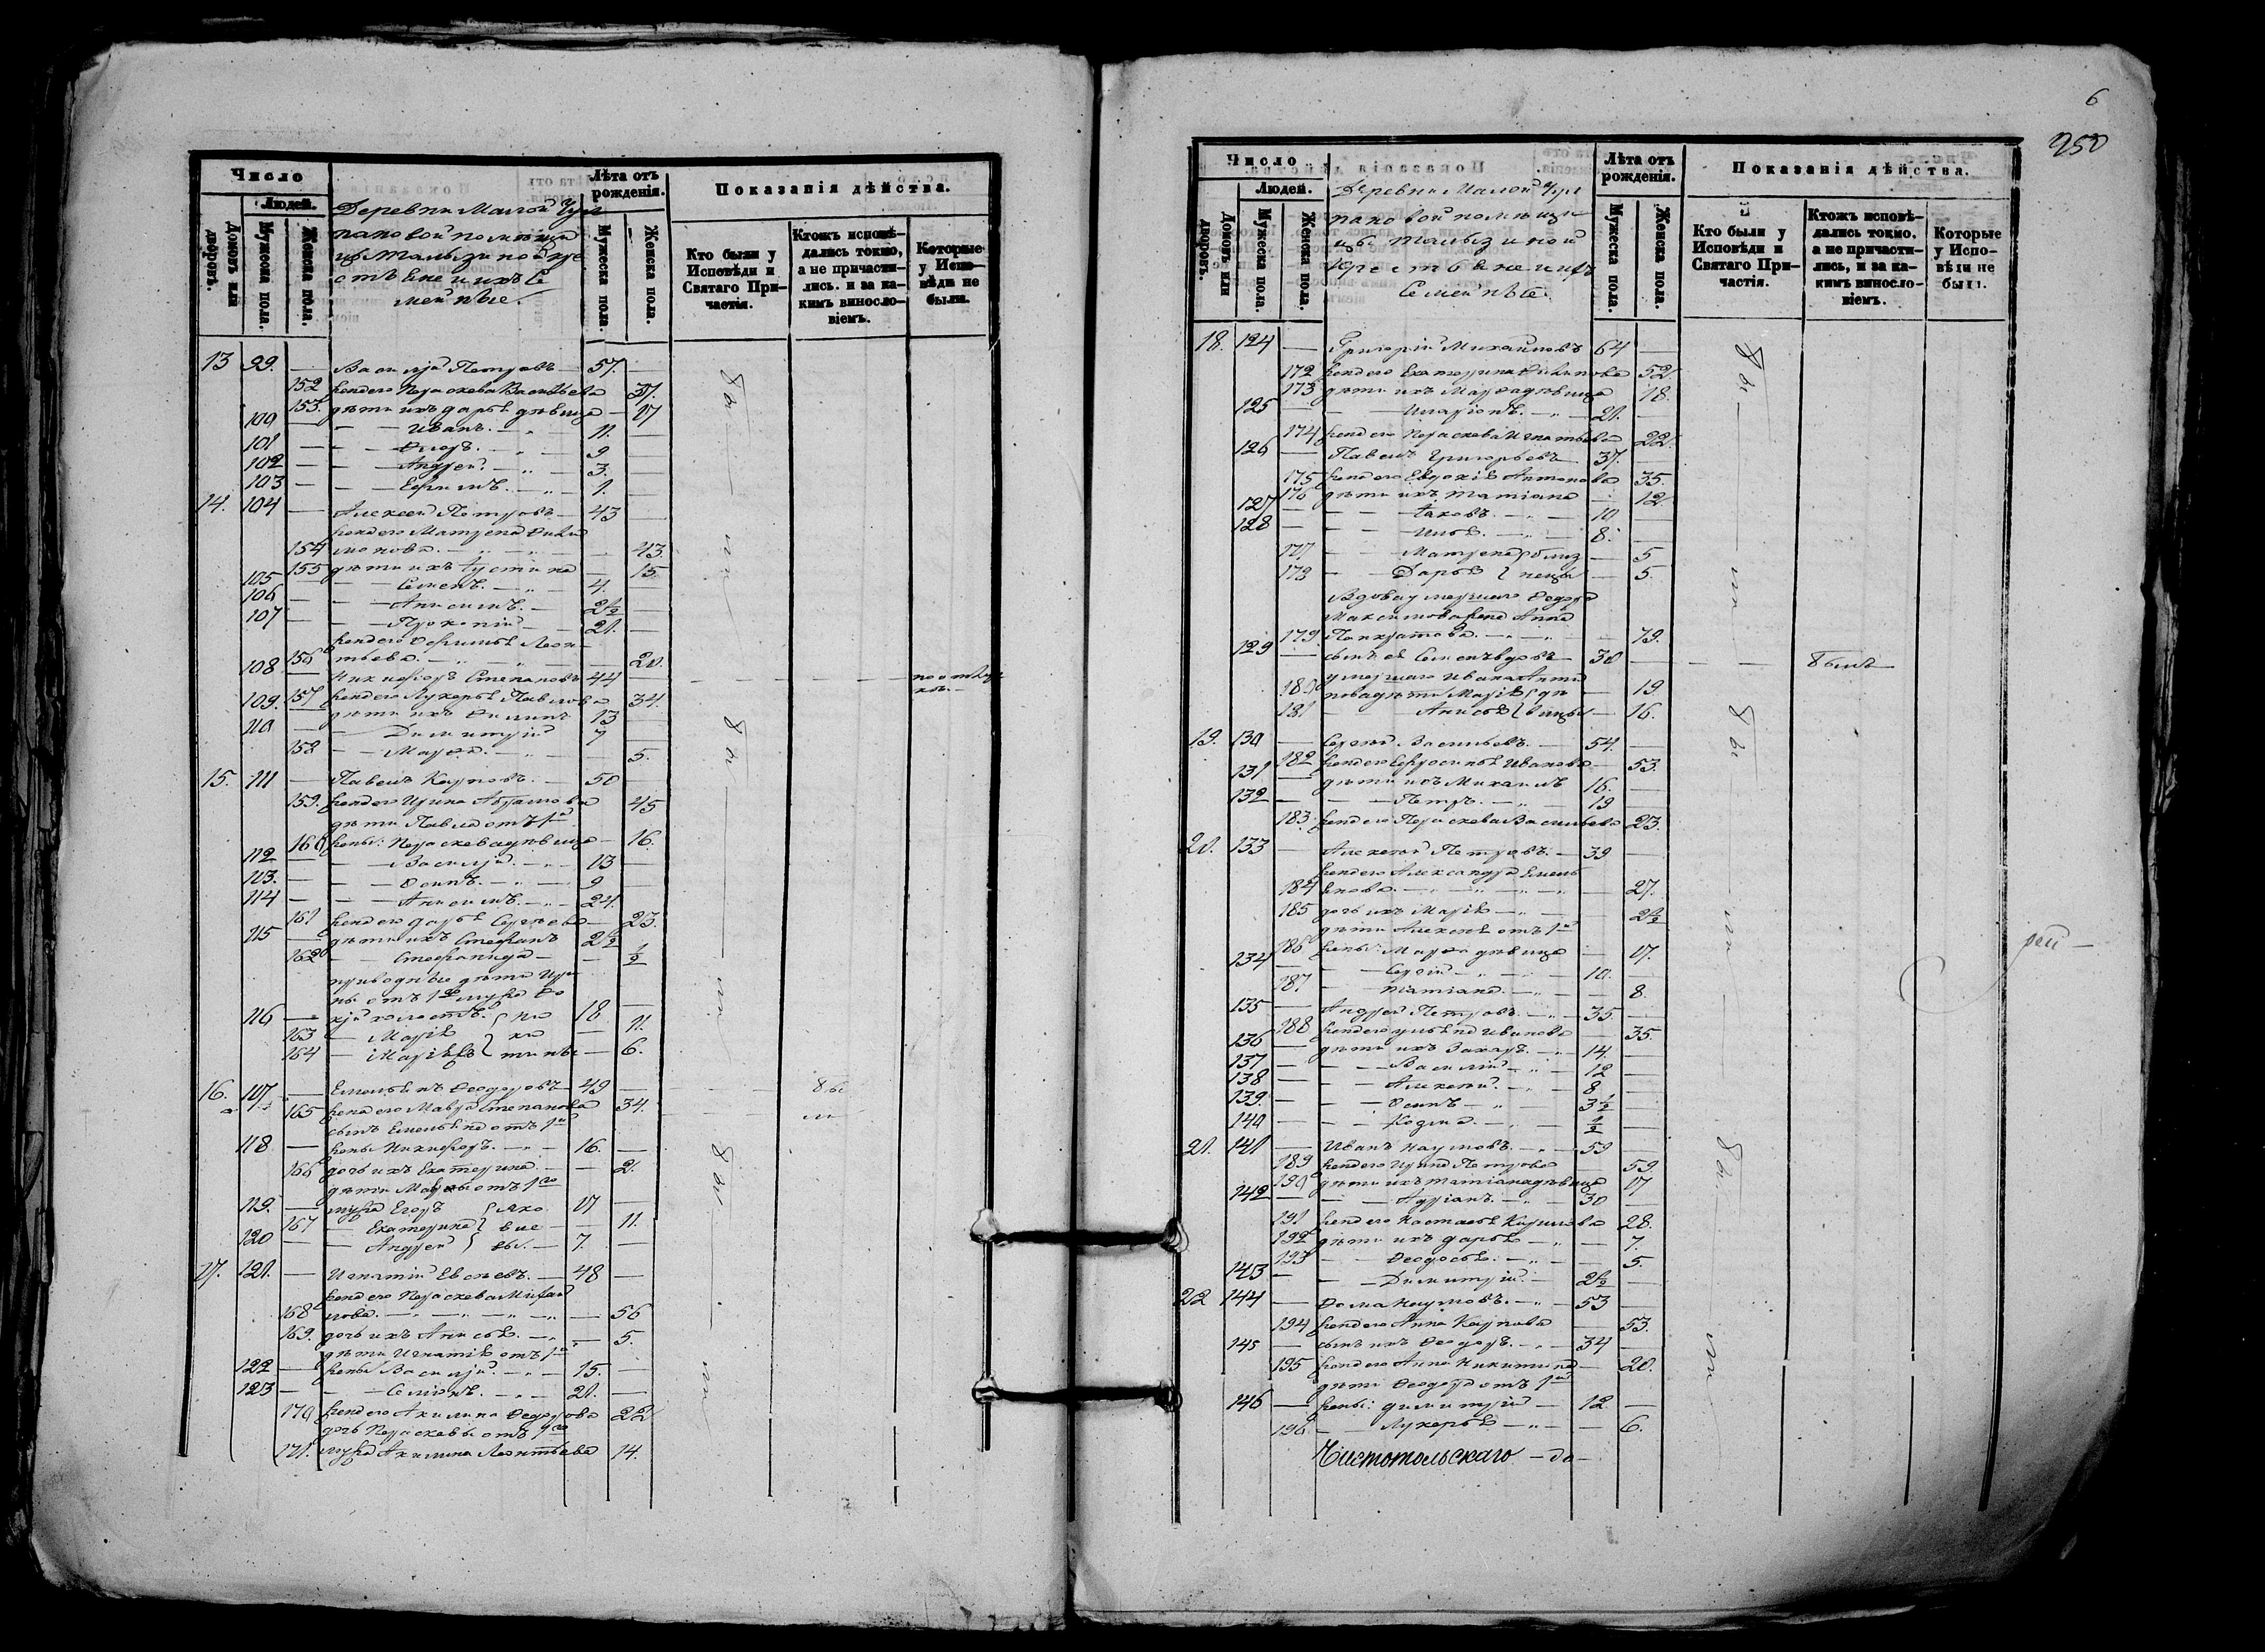 Число
Людей.
Домовъ или дворовъ.
Мужеска пола.
Женска пола.
Деревни Малой Чул
пановой помѣщи
цы Талызиной кре
стьяне и ихъ се
мейные.
Лѣта отъ рожденія.
Мужеска пола.
Женска пола.
Показанія дѣйства.
Кто были у Исповѣди и Святаго При-
частія.
Ктожъ исповѣ-
дались токмо, а не причасти-
лись. и за ка-
кимъ винсло-
віемъ.
Которые у Испо-
вѣди не были.
13 99. — Василій Петровъ — 57. —
152 жена его Параскева Васильева 37.
153. дѣти ихъ Дарья дѣвица — 17
100 — Иванъ. — 11. —
101 — Ѳедоръ. — 9
102 — Андрей. — 3.
103 — Ефимъ. — 1.
14. 104 — Алексей Петровъ — 43
жена его Матрена Фили
154 монова. — 43.
155 дѣти ихъ Іустина — 15
105 — Семенъ. — 4.
106 — Анисимъ. — 2½
107 — Прокопій — 20.
жена его Ефимья Леон
156 тьева. — 20.
108 — Никифоръ Степановъ 44 —
109. 157 жена его Лукерья Павлова 34.
дѣти ихъ Филипъ 13
110 — Димитрій 7
158 — Марѳа. — 5.
15. 111 — Павелъ Карповъ. — 50
159. жена его Ирина Абрамова 45
дѣти Павла отъ 1й
160 жены: Параскева дѣвица — 16.
112 — Василій. — 13 —
113. — Осипъ. — 9
114 — Анисимъ. — 24.
161 жена его Дарья Сергѣева — 23.
115 — дѣти ихъ Стефанъ 2½
162 — Стефанида — ½
приводные дѣти Ири
ны отъ 1го мужа
116 — холостъ. 18 —
163 — Марія — 11.
164 — Марія — 6.
16. 117 — Емельянъ Ѳеодоровъ — 49 —
165 жена его Мавра Степанова 34.
сынъ Емельяна отъ 1й
118 — жены Никифоръ. — 16. —
166 дочь ихъ Екатерина — 2.
дѣти Мавры отъ 1го
119. — мужа Егоръ 17 —
167 — Екатерина — 11.
120 — Андрей — 7. —
17. 121. — Игнатій Евсѣевъ. — 48 —
жена его Параскева Михай
168 лова. — 56
169. дочь ихъ Анисья. — 5.
дѣти Игнатія отъ 1й
122 — жены Василій. — 15. —
123 — Семіонъ. — 20. —
170 жена его Акилина Ѳедорова 22
дочь Параскевы отъ 1го
171. мужа Акилина Леонтьева 14.
бы
ли
бы
ли
бы
ли
бы
ли
6
250
Число
Людей.
Домовъ или дворовъ.
Мужеска пола
Женска пола.
Деревни Малой Чул
пановой помѣщи
цы Талызиной
крестьяне и ихъ
семейные.
Лѣта отъ рожденія.
Мужеска пола.
Женска пола.
Показанія дѣйства.
Кто были у Исповѣди и Святаго При-
частія.
Ктожъ исповѣ-
дались токмо. а не причасти-
лись, и за ка-
кимъ винсло-
віемъ.
Которые у Испо-
вѣди не были.
18. 124 — Григорій Михайловъ 64 —
172 жена его Екатерина Филипова 52.
173 дѣти ихъ Марѳа дѣвица 18.
125 — Иларіонъ. — 20. —
174 жена его Параскева Игнатьева 22.
126 — Павелъ Григорьевъ 37.
175 жена его Евдокія Антонова 35.
176 дѣти ихъ Татіана — 12
127 — Іаковъ. — 10
128 — Илья. — 8.
177 — Матрена близ — 5
178 — Дарья нецы — 5.
Вдова умершаго Ѳедора
Максимова жена Анна
179 Панкратова. — 79.
129 — сынъ ея Семенъ вдовъ — 30 — былъ
180 умершаго Ивана
дѣти Марія дѣ — 19
181 — Анисья вицы — 16.
19. 130 — Сергѣй Васильевъ. — 54.
182 жена его Ефросинья Иванова — 53.
131 — дѣти ихъ Михаилъ 16.
132 — Петръ. — 19
183. жена его Параскева Васильева 23.
20. 133 — Алексей Петровъ. — 39 —
жена его Александра Емель
184 янова. — 27.
185 дочь ихъ Марія — 2½
дѣти Алексея отъ 1й
186 жены: Марѳа дѣвица — 17.
134 — Сергій — 10.
187 — Татіана. — 8.
135 — Андрей Петровъ — 35 —
188 жена его Ульяна Иванова — 35.
136 — дѣти ихъ Захаръ. — 14.
137 — Василій — 12
138 — Алексей. — 8
139. — Осипъ — 3½
140 — Козма. — ½
21. 141 — Иванъ Наумовъ. — 59 —
189 жена его Ирина Петрова 59
190 дѣти ихъ Татіана дѣвица 17
142 — Адріанъ. — 30 —
191 жена его Настасья Карпова 28.
192 дѣти ихъ Дарья — 7.
193 — Ѳеодосья. — 5.
143 — Димитрій. — 2½
22 144 — Ѳома Наумовъ. — 53
194 жена его Анна Карпова — 53.
145 — сынъ ихъ Ѳеодоръ. — 34 —
195 жена его Анна Никитина — 20.
дѣти Ѳеодора отъ 1й
146 — жены: Димитрій — 12 —
196. — Лукерья — 6.
Чистопольскаго — до —
бы
ли
бы
ли
бы
ли